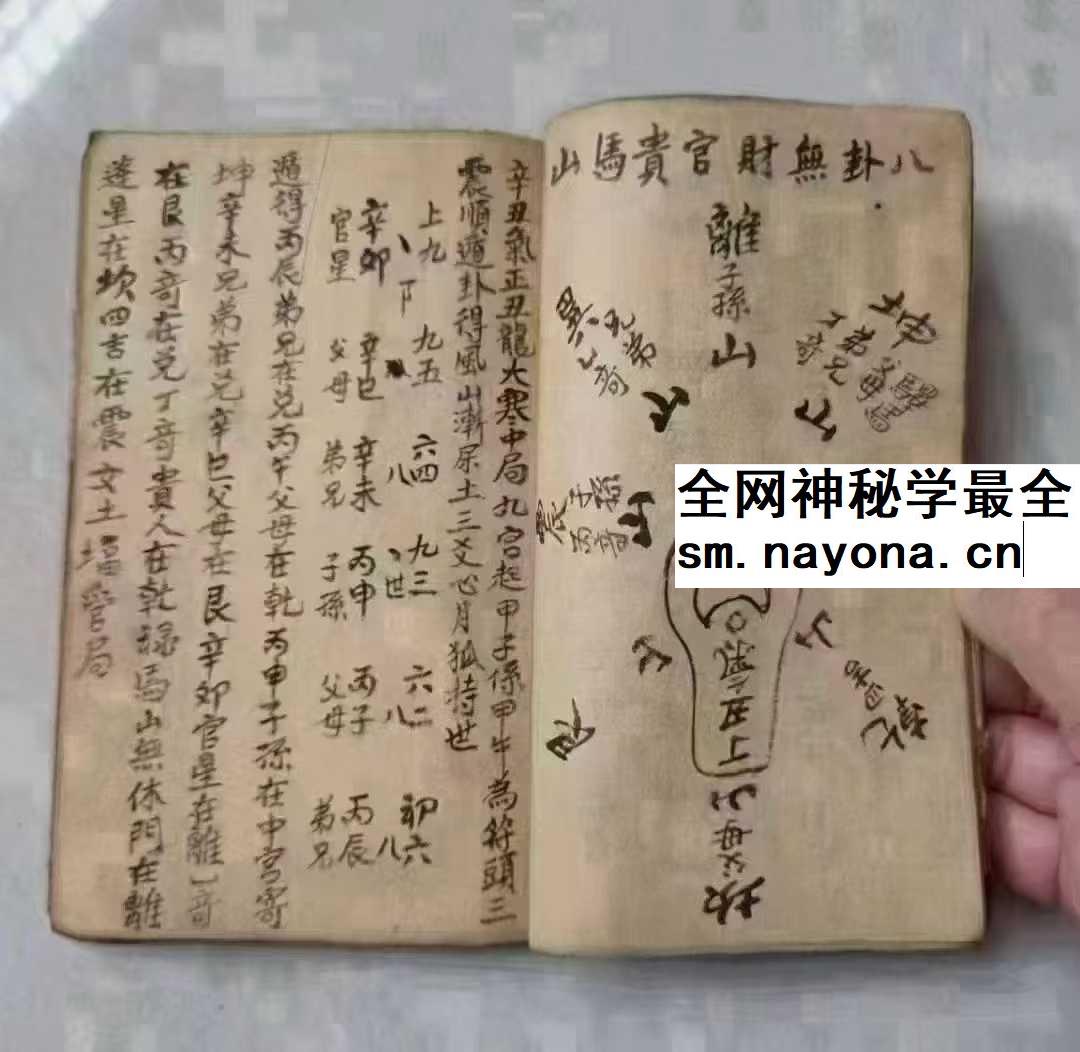 八卦無財官貴馬山
離
子孫
山
坤
驛馬
父母
弟兄
丁奇
巽
兄弟
乙奇
震
子孫
丙奇
山
丁丑氣
艮
乾
坎
父母
山
全网神秘学最全
sm.nayona.cn
辛丑氣正丑龍大寒中局九宮起甲子係甲午為符頭三
震順遁卦得風山漸屎土三爻心月狐持世
上九 九五 六四 九三 六二 初六
辛卯 辛巳 辛未 丙申 丙子 丙辰
世
官星 父母 弟兄 子孫 父母 弟兄
遁得丙辰弟兄在兑丙午父母在乾丙申子孫在中宮寄
坤辛未兄弟在兑辛巳父母在艮辛卯官星在離乙奇
在艮丙奇在兑丁奇貴人在乾祿馬山無休門在離
蓬星在坎四吉在震文土
局